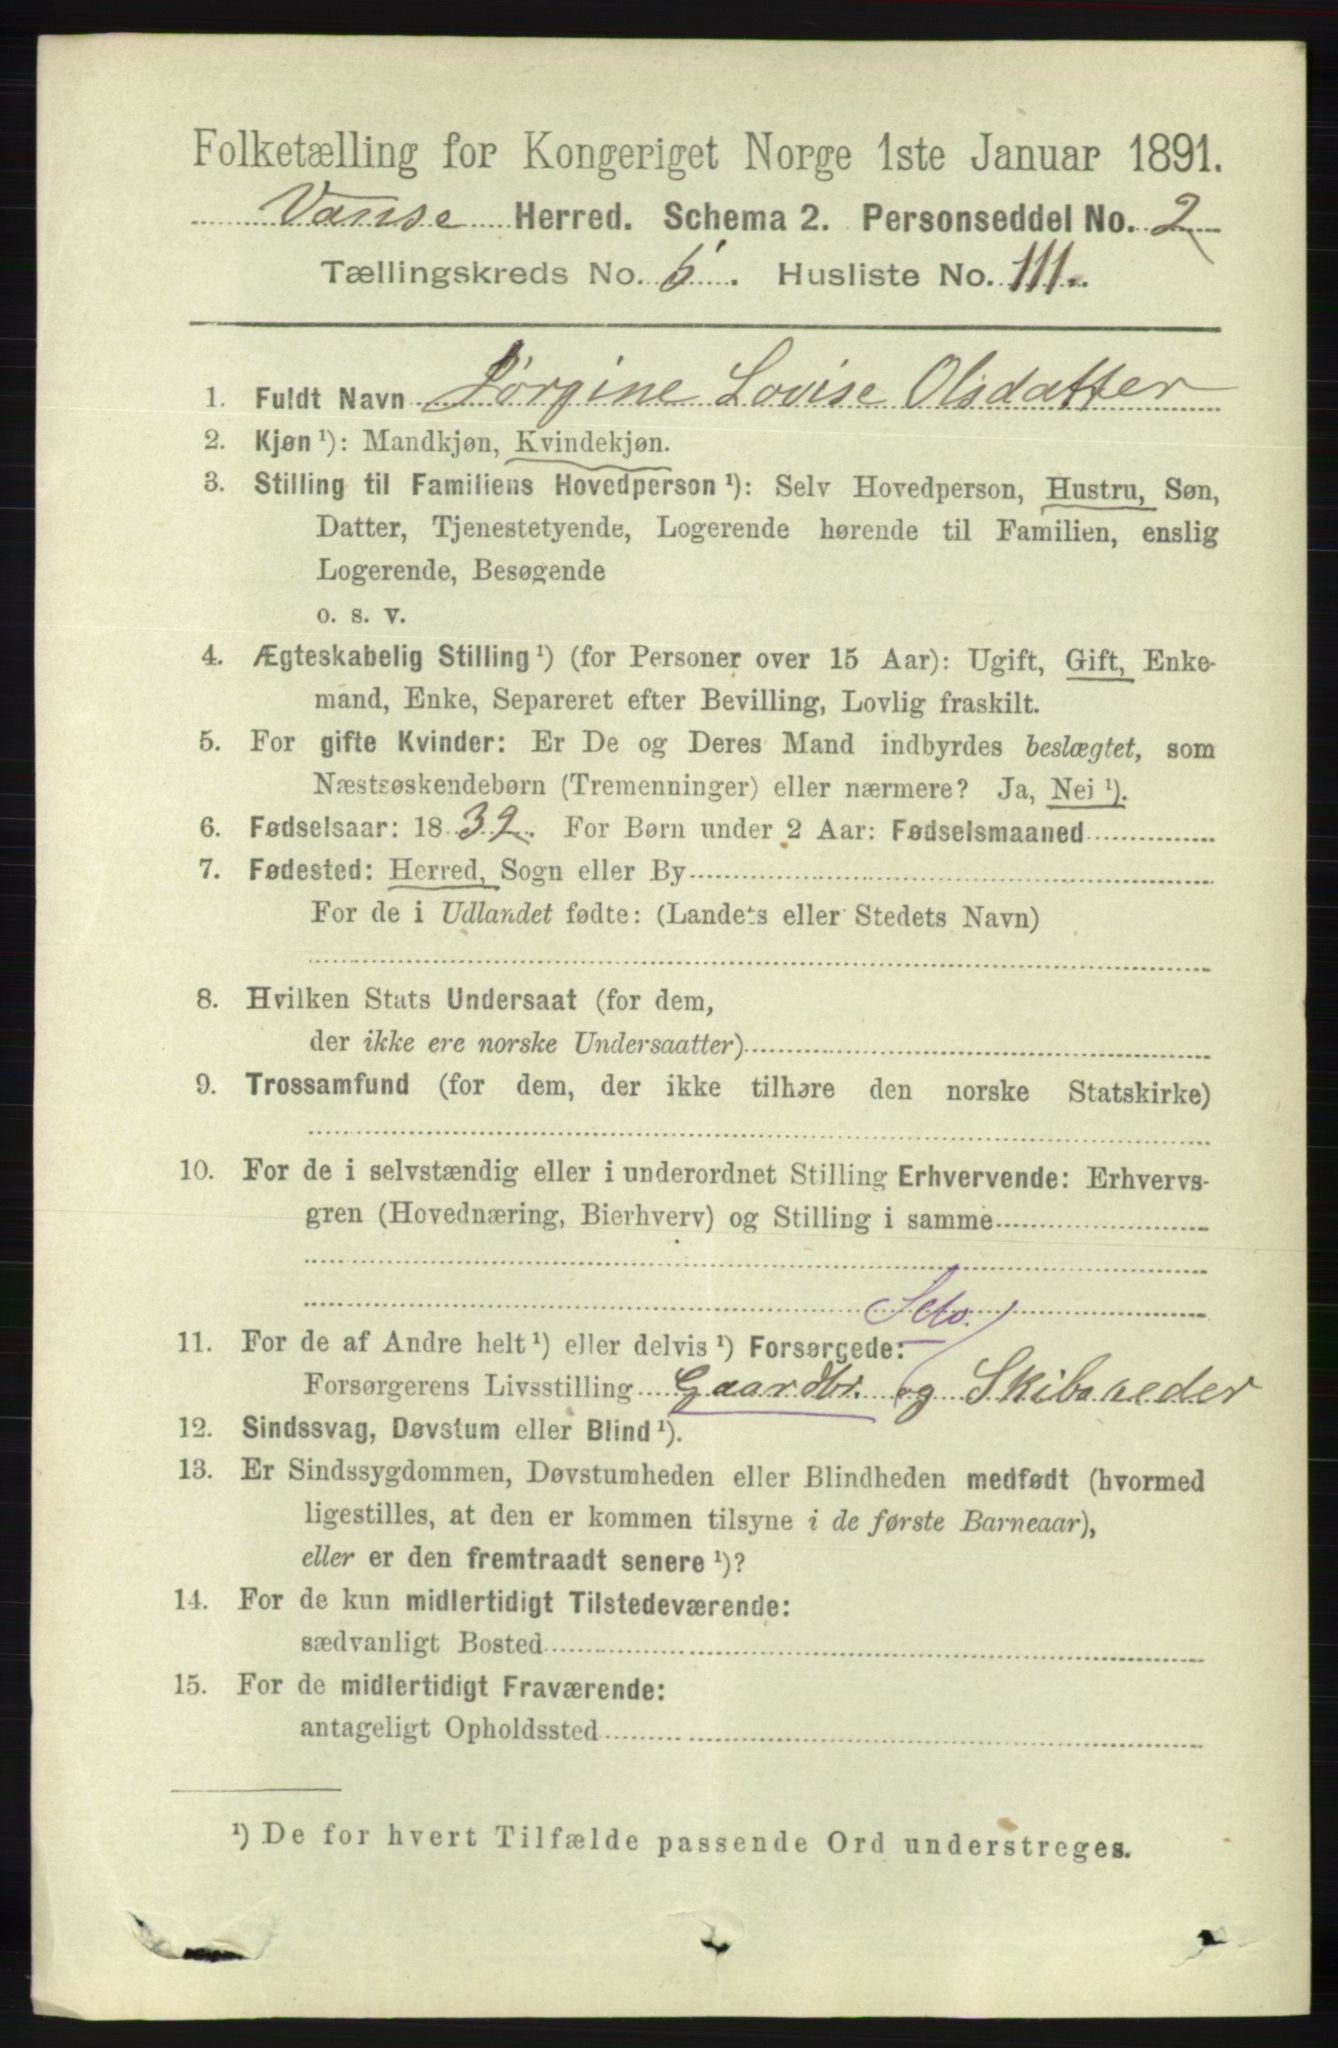 Folketælling for Kongeriget Norge 1ste Januar 1891.
Vanse Herred. Schema 2. Personseddel No. 2
Tællingskreds No. 5. Husliste No. 111.
1. Fuldt Navn Jørgine Lovise Olsdatter
2. Kjøn ¹): Mandkjøn, Kvindekjøn.
3. Stilling til Familiens Hovedperson ¹): Selv Hovedperson, Hustru, Søn,
Datter, Tjenestetyende, Logerende hørende til Familien, enslig
Logerende, Besøgende
o. s. v.
4. Ægteskabelig Stilling ¹) (for Personer over 15 Aar): Ugift, Gift, Enke-
mand, Enke, Separeret efter Bevilling, Lovlig fraskilt.
5. For gifte Kvinder: Er De og Deres Mand indbyrdes beslægtet, som
Næstsøskendebørn (Tremenninger) eller nærmere? Ja, Nei ¹).
6. Fødselsaar: 1832. For Børn under 2 Aar: Fødselsmaaned
7. Fødested: Herred, Sogn eller By
For de i Udlandet fødte: (Landets eller Stedets Navn)
8. Hvilken Stats Undersaat (for dem,
der ikke ere norske Undersaatter)
9. Trossamfund (for dem, der ikke tilhøre den norske Statskirke)
10. For de i selvstændig eller i underordnet Stilling Erhvervende: Erhvervs-
gren (Hovednæring, Bierhverv) og Stilling i samme
Selv.
11. For de af Andre helt ¹) eller delvis ¹) Forsørgede:
Forsørgerens Livsstilling Gaardbr. og Skibsreder
12. Sindssvag, Døvstum eller Blind ¹).
13. Er Sindssygdommen, Døvstumheden eller Blindheden medfødt (hvormed
ligestilles, at den er kommen tilsyne i de første Barneaar),
eller er den fremtraadt senere ¹)?
14. For de kun midlertidigt Tilstedeværende:
sædvanligt Bosted
15. For de midlertidigt Fraværende:
antageligt Opholdssted
¹) De for hvert Tilfælde passende Ord understreges.